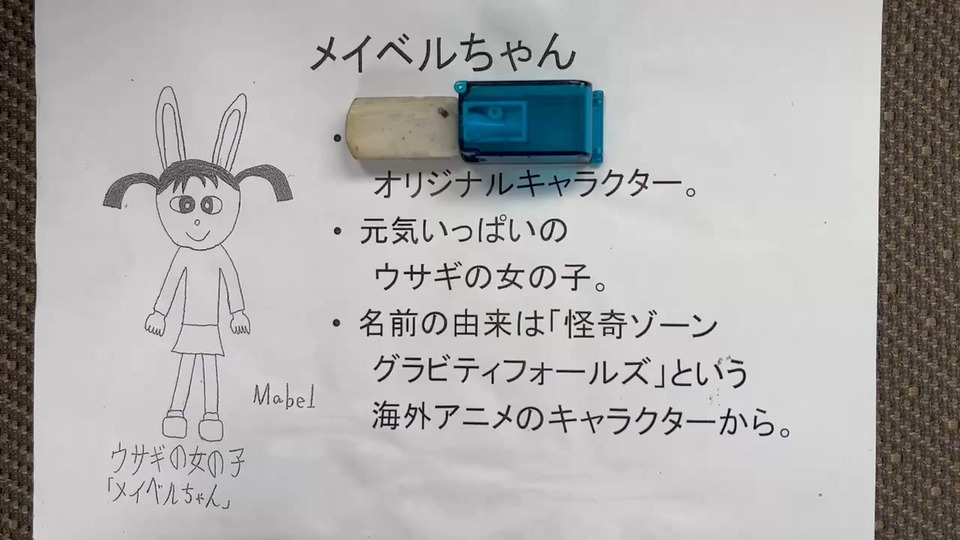 メイベルちゃん
•
オリジナルキャラクター。
• 元気いっぱいの
ウサギの女の子。
• 名前の由来は「怪奇ゾーン
グラビティフォールズ」という
海外アニメのキャラクターから。
Mabel
ウサギの女の子
「メイベルちゃん」